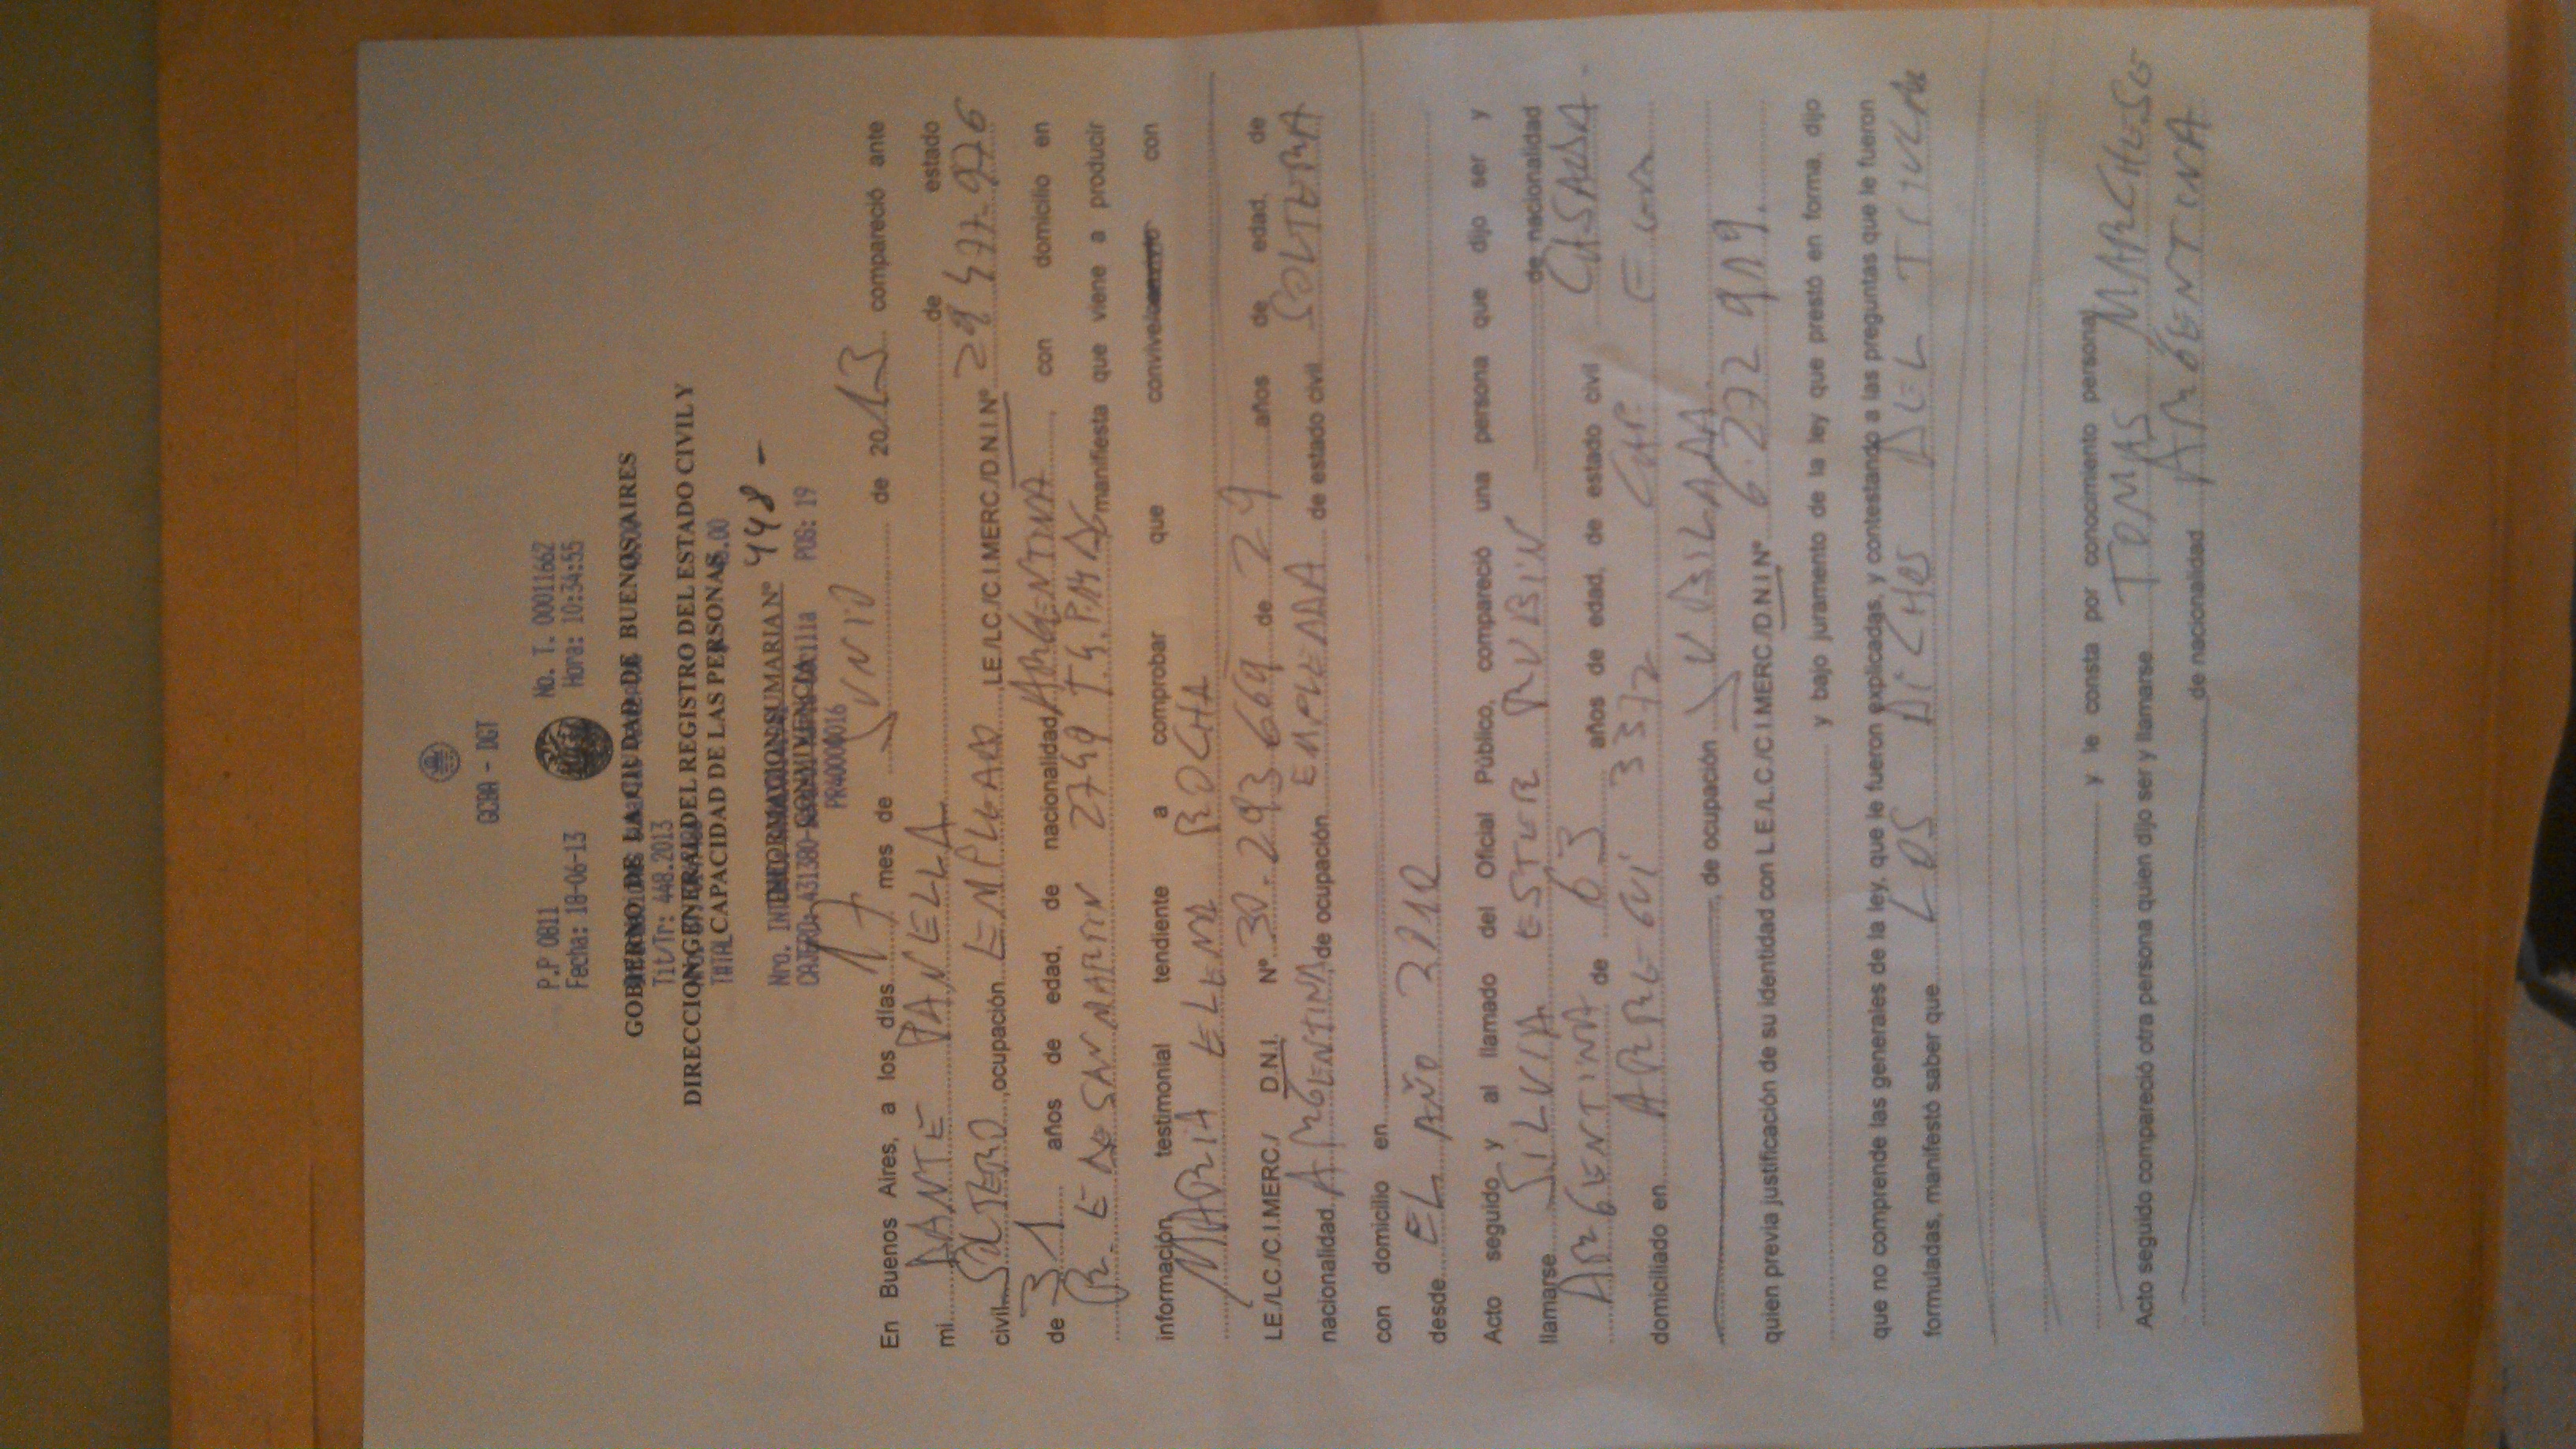 GCBA - DGT
P.P 0811 No. T. 00011662
Fecha: 18-06-13 Hora: 10:34:55
GOBIERNO DE LA CIUDAD DE BUENOS AIRES
Tit/Tr: 448.2013
DIRECCION GENERAL DEL REGISTRO DEL ESTADO CIVIL Y
CAPACIDAD DE LAS PERSONAS
INFORMACION SUMARIA Nº 448 -
CONVIVENCIA POS: 19
PR40000016
En Buenos Aires, a los días 17 mes de JUNIO de 2013 compareció ante
mi DANTE PANELLA de estado
civil SOLTERO, ocupación EMPLEADO LE./LC./C.I.MERC./D.N.I.Nº 29.477.976
de 31 años de edad, de nacionalidad ARGENTINA, con domicilio en
R. E. DE SAN MARTIN 2749 manifiesta que viene a producir
información testimonial tendiente a comprobar que convive con
MARIA ELENA ROCHA
LE./LC./C.I.MERC./ D.N.I. Nº 30.293.669 de 29 años de edad, de
nacionalidad ARGENTINA, de ocupación EMPLEADA de estado civil SOLTERA
con domicilio en
desde EL AÑO 2010
Acto seguido y al llamado del Oficial Público, compareció una persona que dijo ser y
llamarse SILVIA ESTER RUBIN de nacionalidad
ARGENTINA de 63 años de edad, de estado civil CASADA.
domiciliado en 3372
, de ocupación JUBILADA
quien previa justificación de su identidad con L.E./L.C./C.I.MERC./D.N.I Nº 6.272.919.
y bajo juramento de la ley que prestó en forma, dijo
que no comprende las generales de la ley, que le fueron explicadas, y contestando a las preguntas que le fueron
formuladas, manifestó saber que LOS DICHOS DEL TITULAR
y le consta por conocimiento personal
Acto seguido compareció otra persona quien dijo ser y llamarse TOMAS MARCHESE
de nacionalidad ARGENTINA